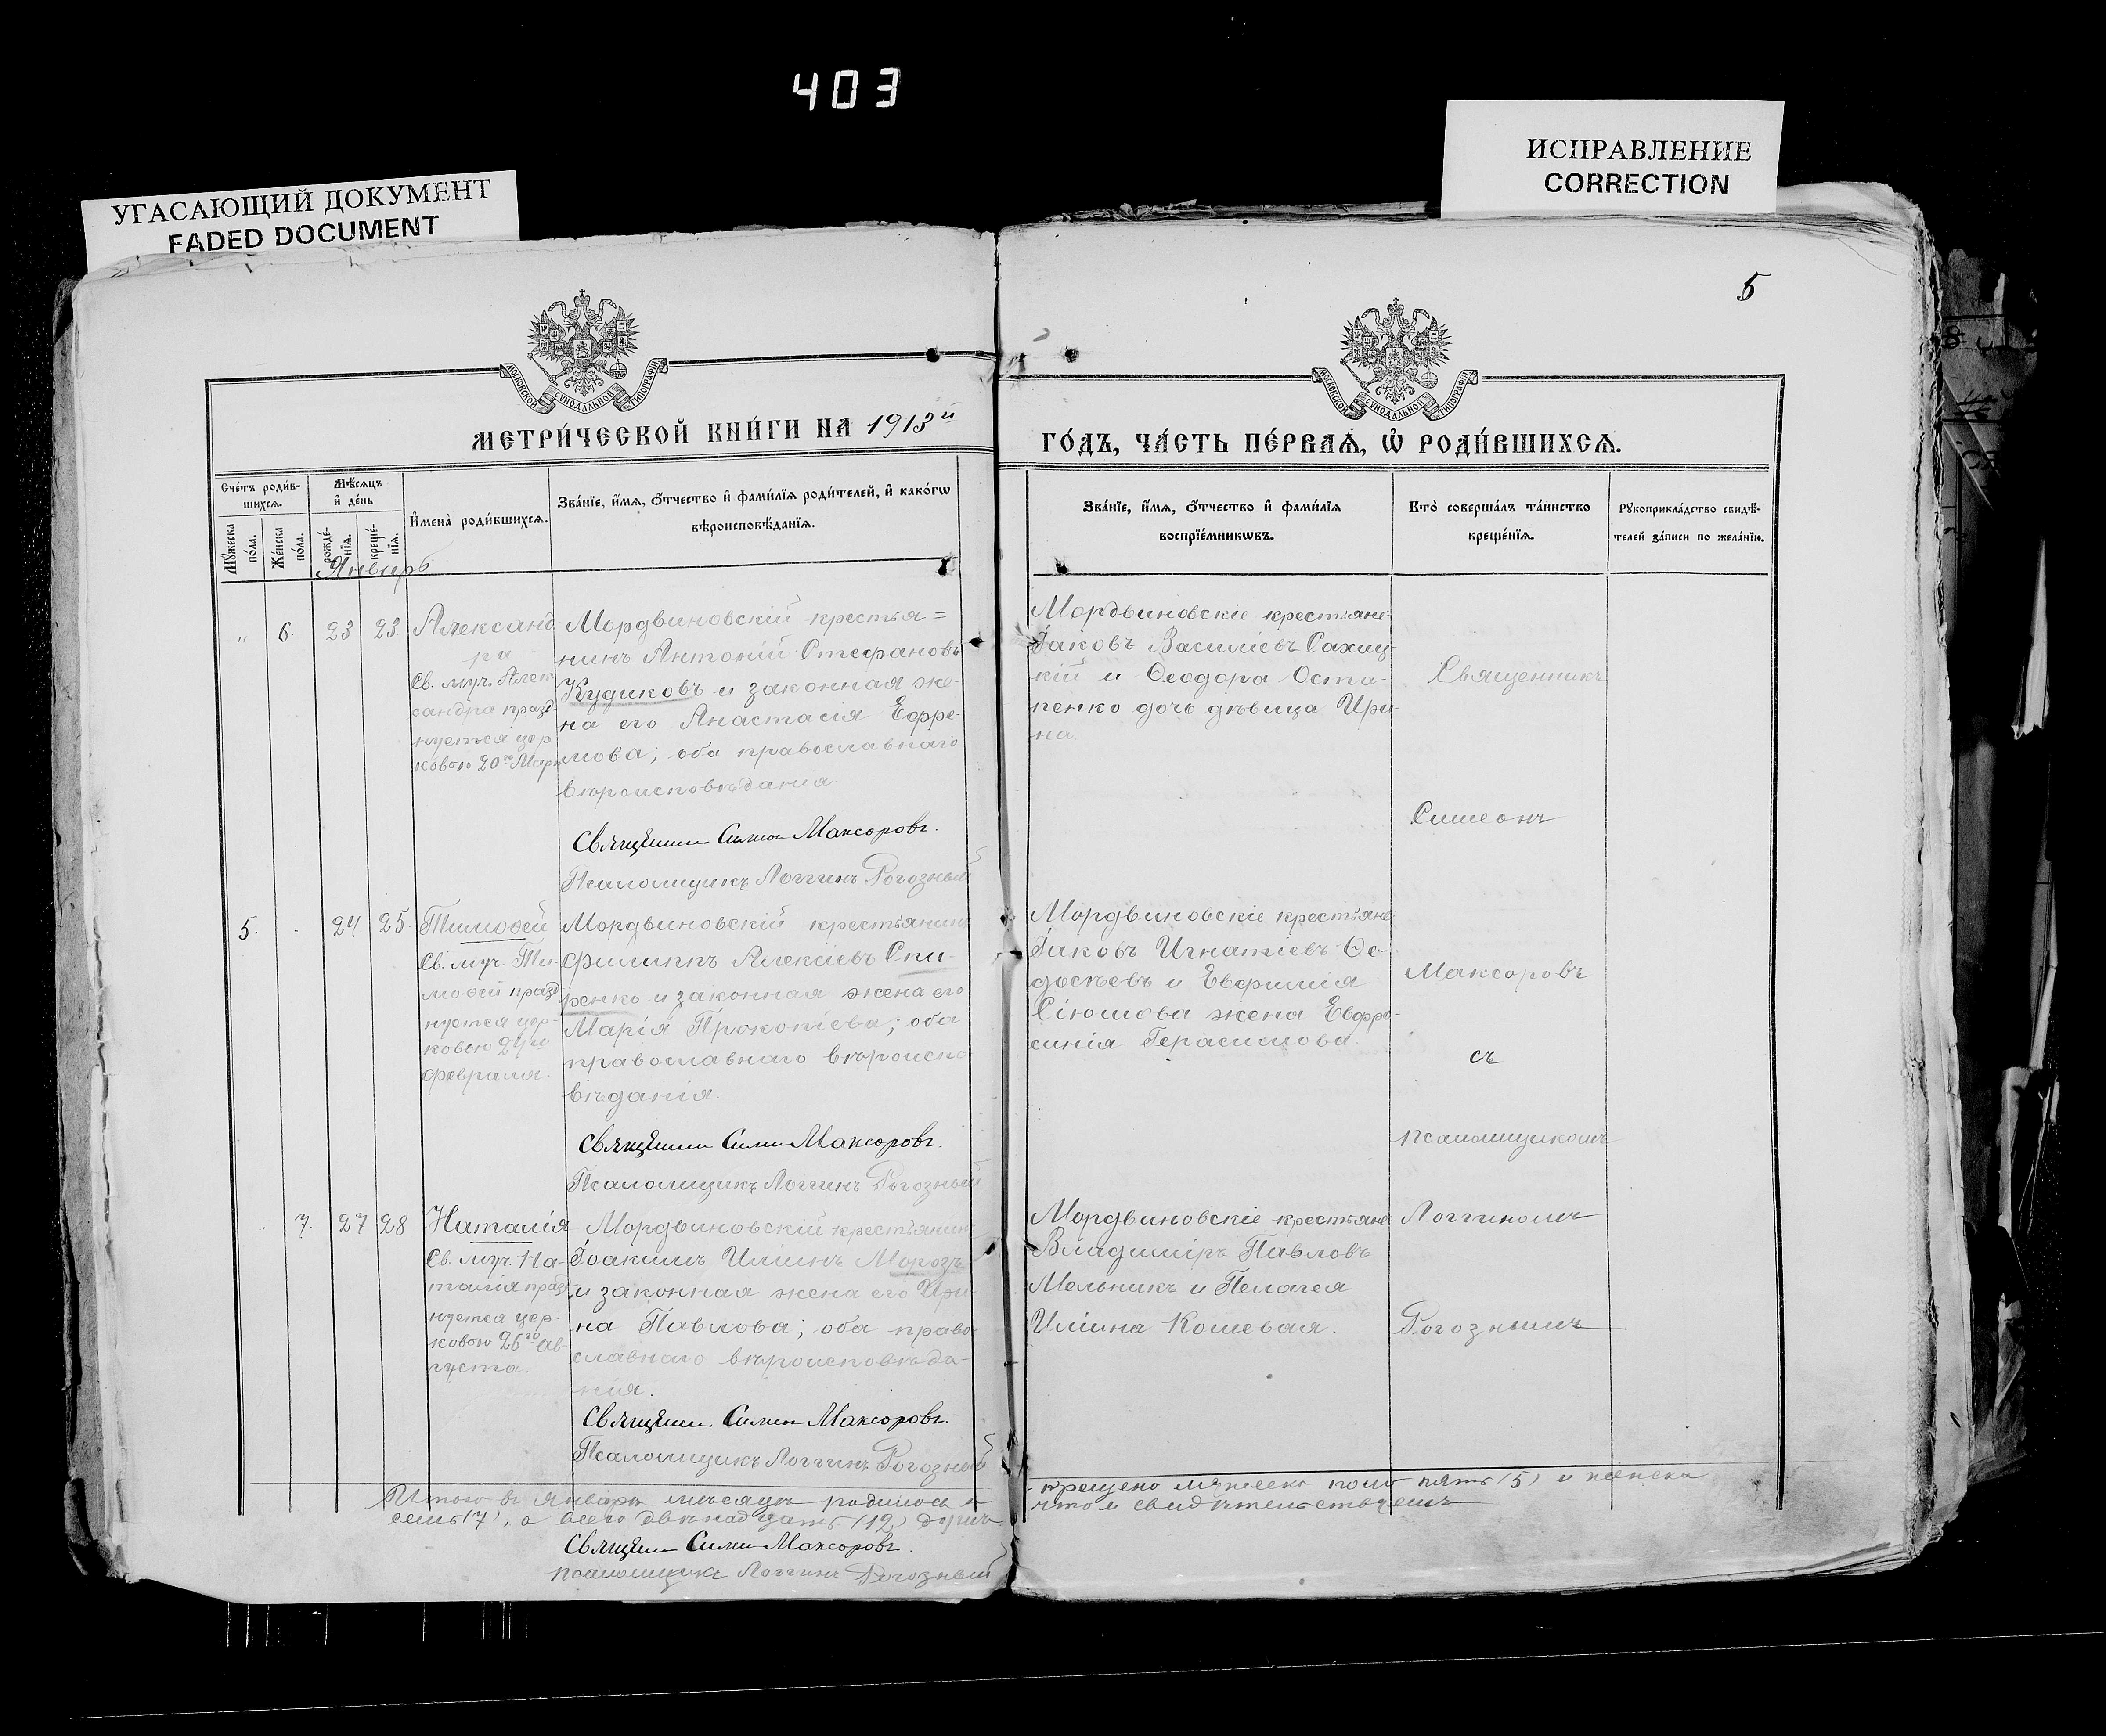 403
УГАСАЮЩИЙ ДОКУМЕНТ
FADED DOCUMENT
ИСПРАВЛЕНИЕ
CORRECTION
5
МОСКОВСКОЙ СУНОДАЛЬНОЙ ТИПОГРАФІИ
МОСКОВСКОЙ СУНОДАЛЬНОЙ ТИПОГРАФІИ
МЕТРИ́ЧЕСКОЙ КНИ́ГИ НА 1913й
ГО́ДЪ, ЧА́СТЬ ПЕ́РВАѦ, Ѡ҆ РОДИ́ВШИХСѦ.
Сче́тъ роди́в-
шихсѧ.
Мꙋ́жеска
по́ла.
Же́нска
по́ла.
Мѣ́сѧцъ
и҆ де́нь
рожде́-
нїѧ.
креще́-
нїѧ.
И҆мена̀ роди́вшихсѧ.
Зва́нїе, и҆́мѧ, ѻ҆́тчество и҆ фами́лїѧ роди́телей, и҆ како́гѡ
вѣроисповѣ́данїѧ.
Зва́нїе, и҆́мѧ, ѻ҆́тчество и҆ фами́лїѧ
воспрїе́мникѡвъ.
Кто̀ соверша́лъ та́инство
креще́нїѧ.
Рꙋкоприкла́дство свидѣ́-
телей за́писи по жела́нїю.
Январь
" 6. 23 23.
Александ
ра
Св. муч. Алек
сандра празд-
нуется цер
ковью 20го Мар
Мордвиновскій крестья=
нинъ Антоній Стефановъ
Кудиковъ и законная же-
на его Анастасія Ефре-
мова; оба православнаго
вѣроисповѣданія.
Священникъ Симеонъ Максоровъ.
Псаломщикъ Логгинъ Рогозный
Мордвиновскіе крестьяне
Іаковъ Василіевъ Сахац-
кій и Ѳеодора Оста-
пенко дочь дѣвица Ири-
на.
5. - 24 25
Тимоѳей
Св. муч. Ти-
моѳей празд
нуется цер-
ковью 24го
февраля.
Мордвиновскій крестьянинъ
Филиппъ Алексіевъ Спи-
ренко и законная жена его
Марія Прокопіева; оба
православнаго вѣроиспо
вѣданія.
Священникъ Симеонъ Максоровъ.
Псаломщикъ Логгинъ Рогозный
Мордвиновскіе крестьяне
Іаковъ Игнатіевъ Ѳе-
досѣевъ и Евфимія
жена Евфро-
синія Герасимова.
7. 27 28
Наталія
Св. муч. На-
талія празд
нуется цер-
ковью 26го Ав-
густа.
Мордвиновскій крестьянинъ
Іоакимъ Иліинъ Морозъ
и законная жена его Ири-
на Павлова; оба право-
славнаго вѣроисповѣда-
нія.
Священникъ Симеонъ Максоровъ.
Псаломщикъ Логгинъ Рогозный
Мордвиновскіе крестьяне
Владиміръ Павловъ
Мельникъ и Пелагея
Иліина Кошевая.
Священникъ
Симеонъ
Максоровъ
съ
псаломщикомъ
Логгиномъ
Рогознымъ
Итого въ Январѣ мѣсяцѣ родилось и
крещено мужеска пола пять (5) и женска
семь (7), а всего двѣнадцать (12) душъ
что и свидѣтельствуемъ
Священникъ Симеонъ Максоровъ.
псаломщикъ Логгинъ Рогозный